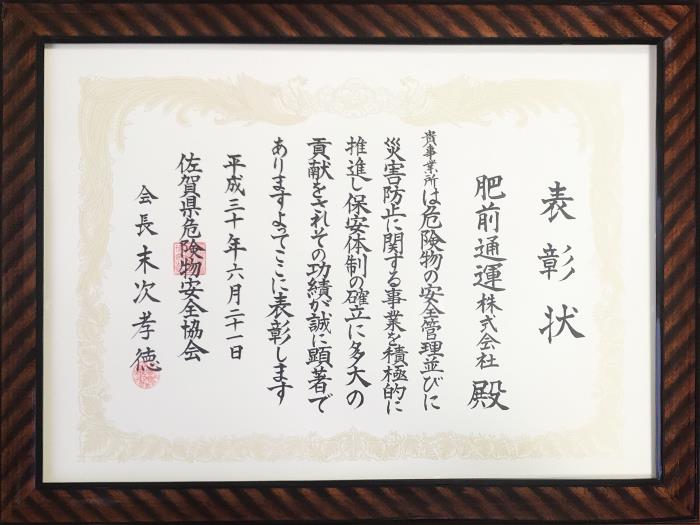 表彰状
肥前通運株式会社 殿
貴事業所は危険物の安全管理並びに
災害防止に関する事業を積極的に
推進し保安体制の確立に多大の
貢献をされその功績が誠に顕著で
ありますよってここに表彰します
平成三十年六月二十一日
佐賀県危険物安全協会
会長 末次孝徳